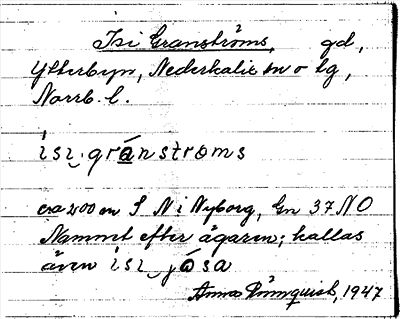 Isi Granströms, gd,
Ytterbyn, Nederkalix sn o tg,
Norrb. l.
ísi‿gránstroms
ca 200 m S N i Nyborg, Gn 37 NO
Namnet efter ägaren; kallas
även ísi‿jåsa
Anna Rönnquist, 1947